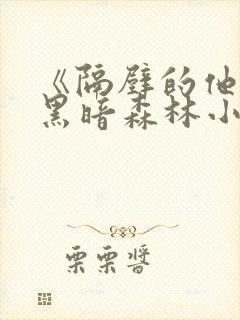 《隔壁的他
黑暗森林小
栗栗醬